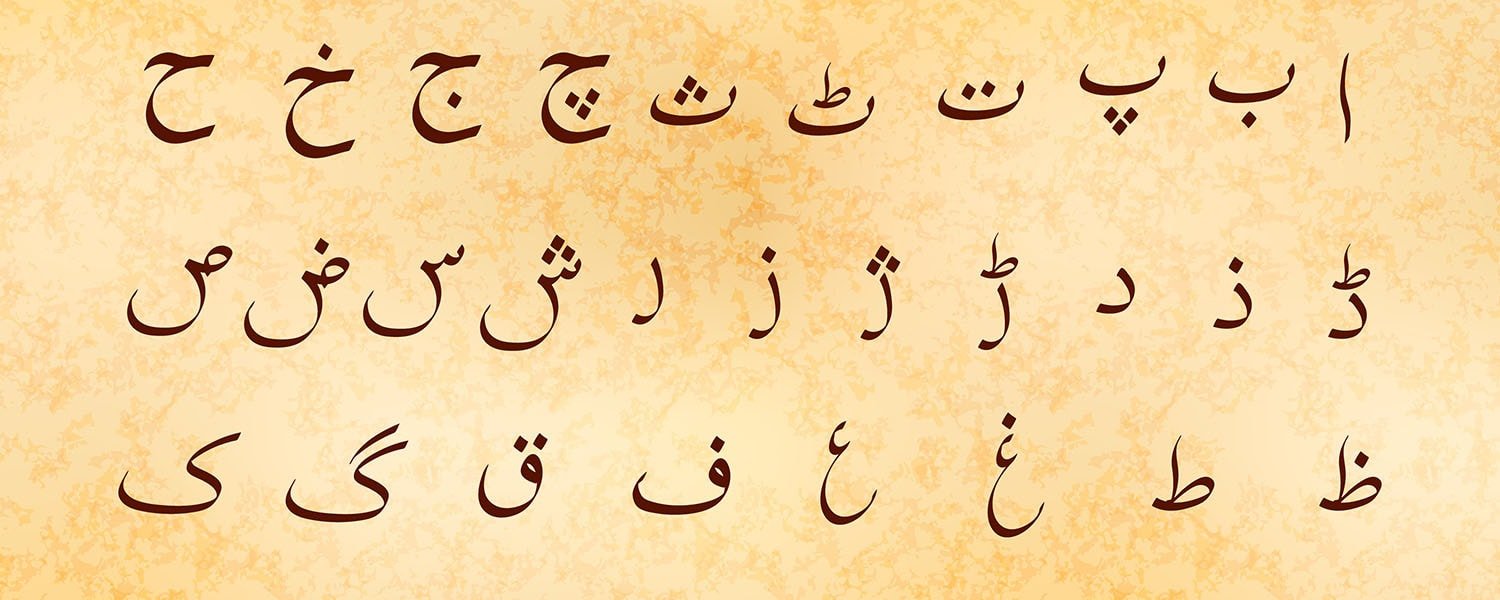 ا ب پ ت ٹ ث چ ج خ ح
ڈ ذ د ڑ ژ ز ر ش س ض ص
ظ ط غ ع ف ق گ ک